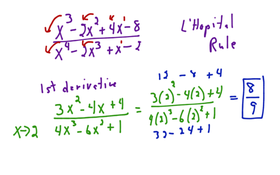 x³ - 2x² + 4x¹ - 8
x⁴ - 2x³ + x¹ - 2
L'Hopital
Rule
1st derivative
12 - 8 + 4
x→2 3x² - 4x + 4 / 4x³ - 6x² + 1 = 3(2)² - 4(2) + 4 / 4(2)³ - 6(2)² + 1 = 8/9
32 - 24 + 1